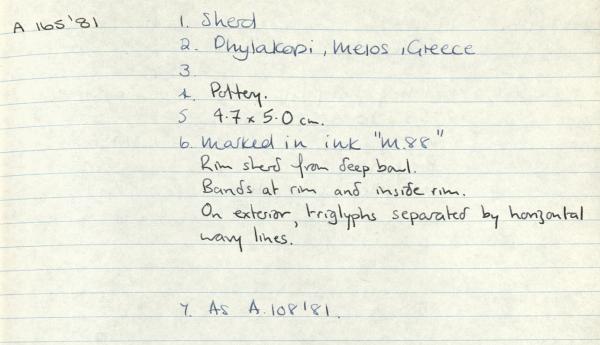 A 165'81
1. Sherd
2. Phylakopi, Melos, Greece
3
4. Pottery.
5 4.7 x 5.0 cm.
6. Marked in ink "M.88"
Rim sherd from deep bowl.
Bands at rim and inside rim.
On exterior, triglyphs separated by horizontal
wavy lines.
7. As A.108'81.